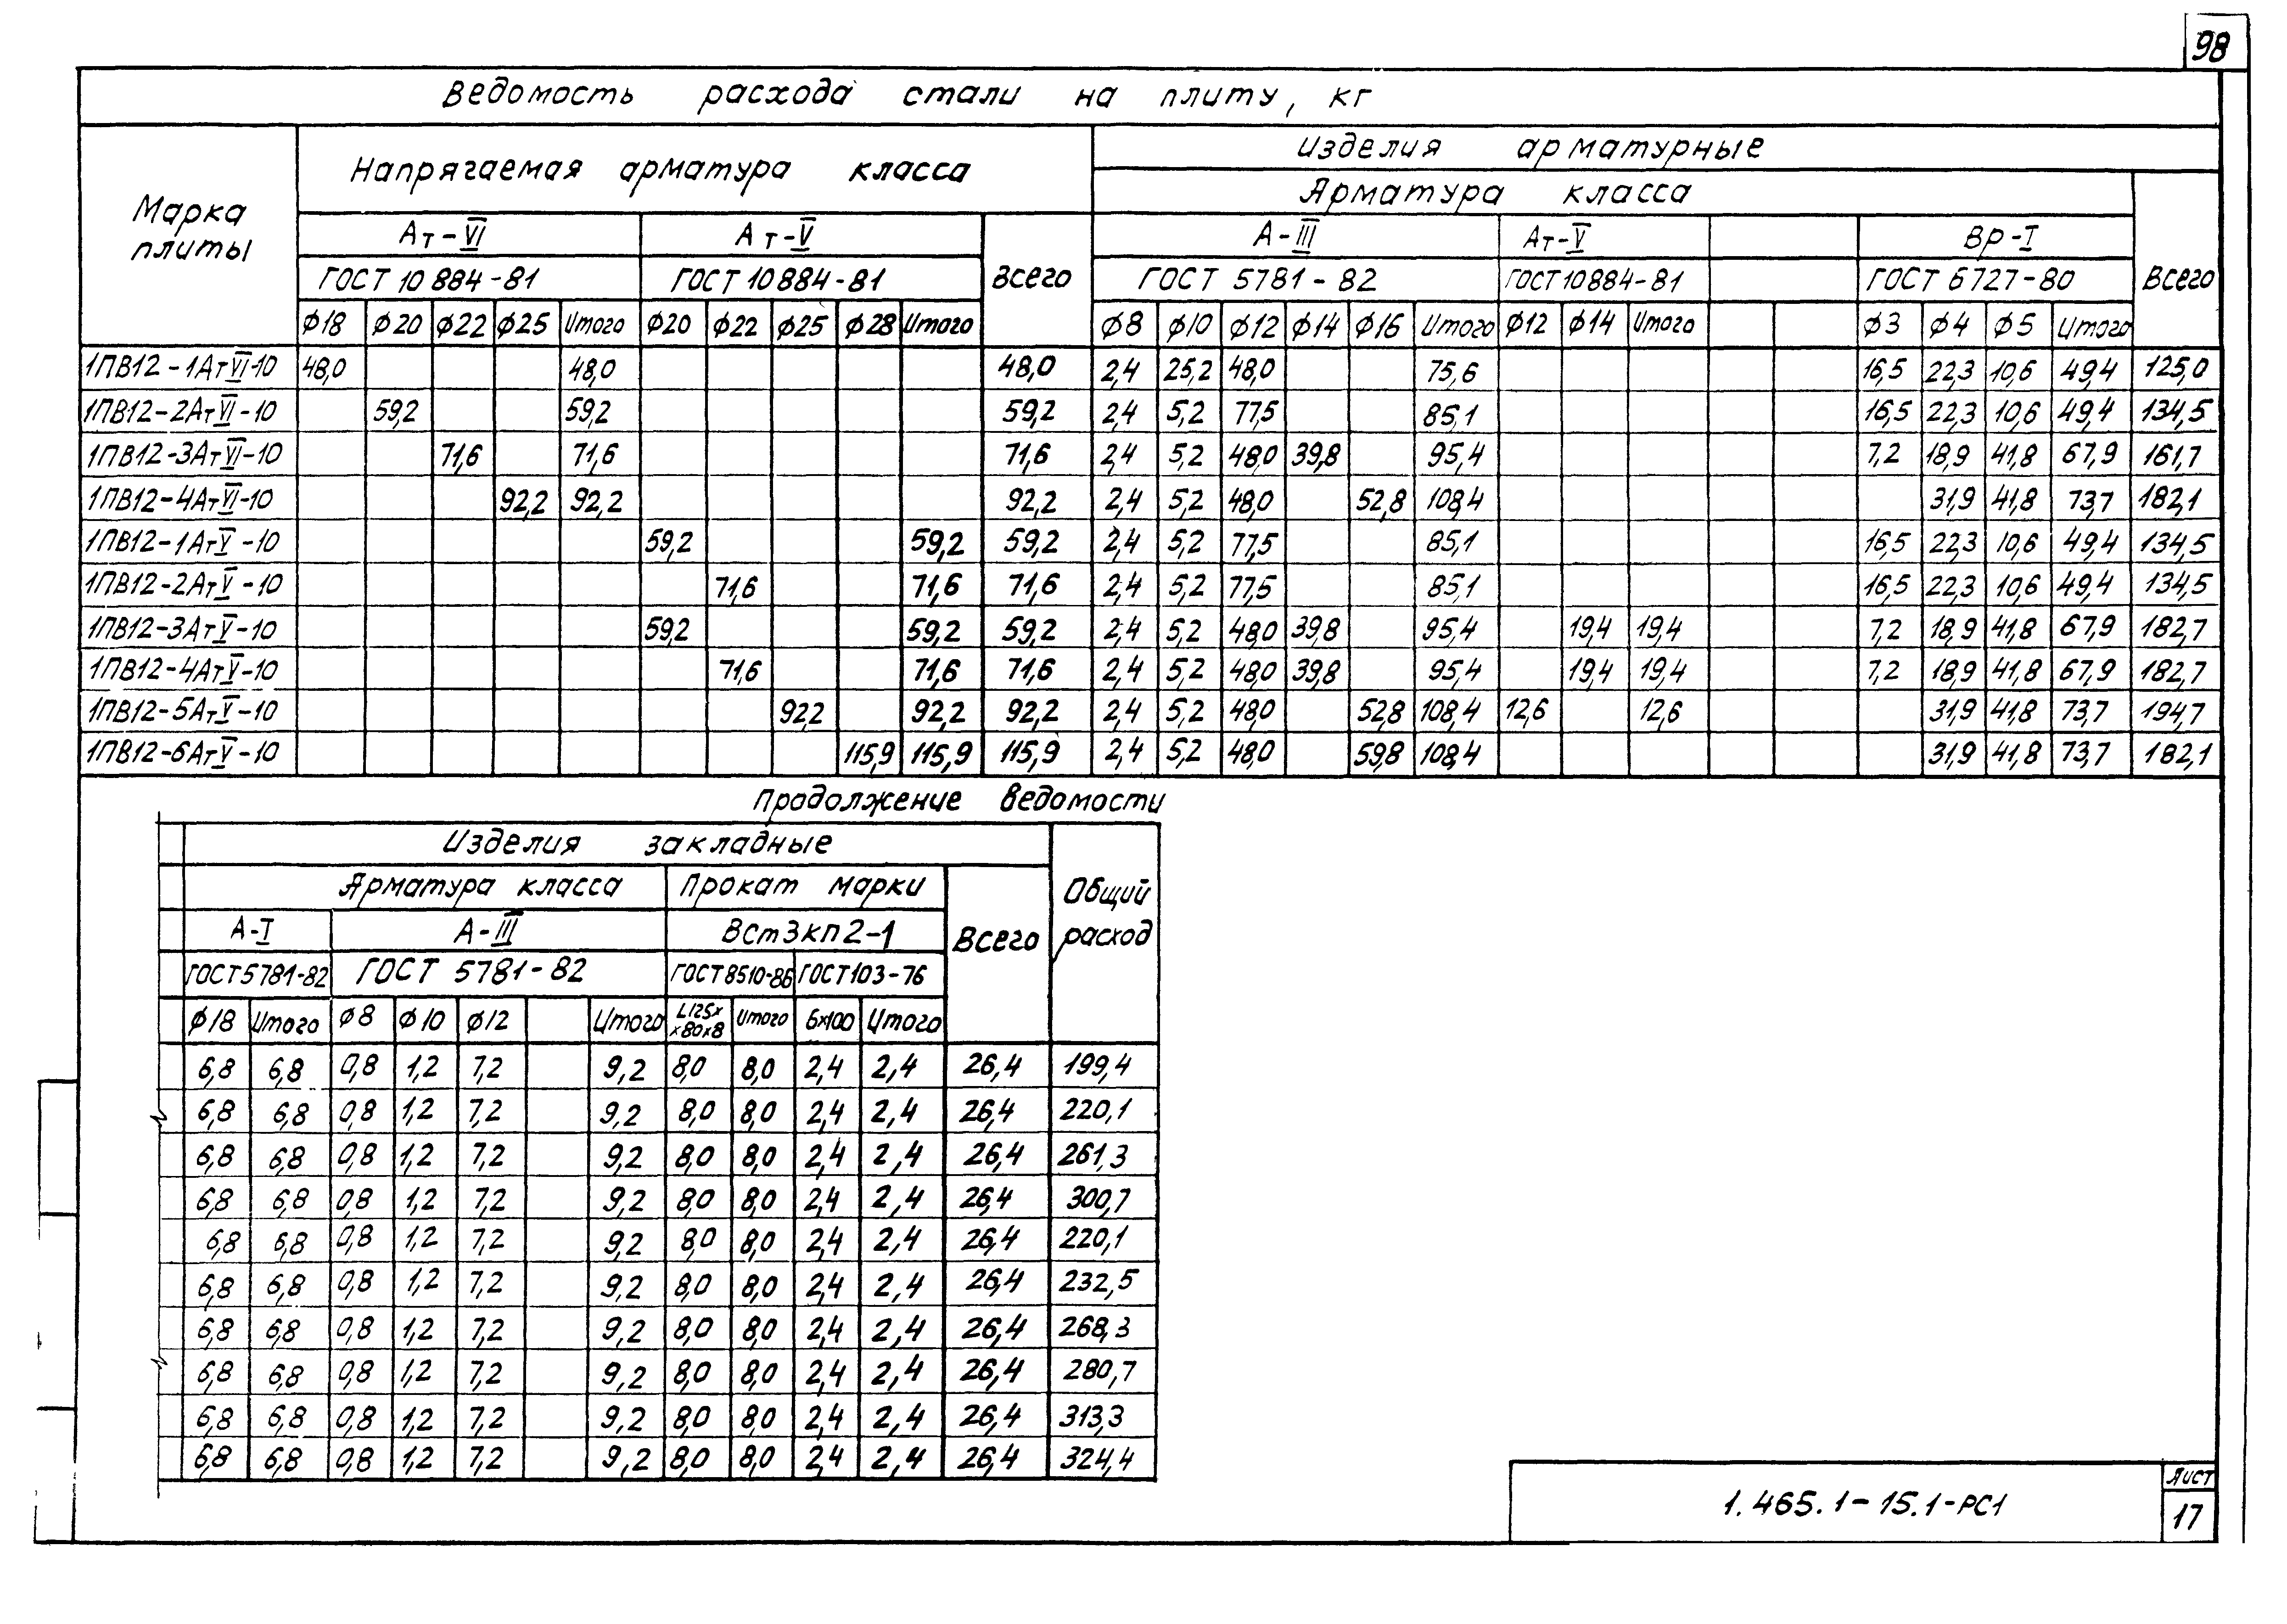 98
Ведомость расхода стали на плиту, кг
Марка плиты
Напрягаемая арматура класса
Изделия арматурные
Арматура класса
Ат-VI Ат-V Всего А-III Ат-V Вр-I Всего
ГОСТ 10884-81 ГОСТ 10884-81 ГОСТ 5781-82 ГОСТ 10884-81 ГОСТ 6727-80
φ18 φ20 φ22 φ25 Итого φ20 φ22 φ25 φ28 Итого φ8 φ10 φ12 φ14 φ16 Итого φ12 φ14 Итого φ3 φ4 φ5 Итого
1ПВ12-1АтVI-10 48,0 48,0 48,0 2,4 25,2 48,0 75,6 16,5 22,3 10,6 49,4 125,0
1ПВ12-2АтVI-10 59,2 59,2 59,2 2,4 5,2 77,5 85,1 16,5 22,3 10,6 49,4 134,5
1ПВ12-3АтVI-10 71,6 71,6 71,6 2,4 5,2 48,0 39,8 95,4 7,2 18,9 41,8 67,9 161,7
1ПВ12-4АтVI-10 92,2 92,2 92,2 2,4 5,2 48,0 52,8 108,4 31,9 41,8 73,7 182,1
1ПВ12-1АтV-10 59,2 59,2 59,2 2,4 5,2 77,5 85,1 16,5 22,3 10,6 49,4 134,5
1ПВ12-2АтV-10 71,6 71,6 71,6 2,4 5,2 77,5 85,1 16,5 22,3 10,6 49,4 134,5
1ПВ12-3АтV-10 59,2 59,2 59,2 2,4 5,2 48,0 39,8 95,4 19,4 19,4 7,2 18,9 41,8 67,9 182,7
1ПВ12-4АтV-10 71,6 71,6 71,6 2,4 5,2 48,0 39,8 95,4 19,4 19,4 7,2 18,9 41,8 67,9 182,7
1ПВ12-5АтV-10 92,2 92,2 92,2 2,4 5,2 48,0 52,8 108,4 12,6 12,6 31,9 41,8 73,7 194,7
1ПВ12-6АтV-10 115,9 115,9 115,9 2,4 5,2 48,0 59,8 108,4 31,9 41,8 73,7 182,1
Продолжение ведомости
Изделия закладные
Общий расход
Арматура класса Прокат марки
А-I А-III ВСт3кп2-1 Всего
ГОСТ 5781-82 ГОСТ 5781-82 ГОСТ 8510-86 ГОСТ 103-76
φ18 Итого φ8 φ10 φ12 Итого L125х х80х8 Итого 6х100 Итого
6,8 6,8 0,8 1,2 7,2 9,2 8,0 8,0 2,4 2,4 26,4 199,4
6,8 6,8 0,8 1,2 7,2 9,2 8,0 8,0 2,4 2,4 26,4 220,1
6,8 6,8 0,8 1,2 7,2 9,2 8,0 8,0 2,4 2,4 26,4 261,3
6,8 6,8 0,8 1,2 7,2 9,2 8,0 8,0 2,4 2,4 26,4 300,7
6,8 6,8 0,8 1,2 7,2 9,2 8,0 8,0 2,4 2,4 26,4 220,1
6,8 6,8 0,8 1,2 7,2 9,2 8,0 8,0 2,4 2,4 26,4 232,5
6,8 6,8 0,8 1,2 7,2 9,2 8,0 8,0 2,4 2,4 26,4 268,3
6,8 6,8 0,8 1,2 7,2 9,2 8,0 8,0 2,4 2,4 26,4 280,7
6,8 6,8 0,8 1,2 7,2 9,2 8,0 8,0 2,4 2,4 26,4 313,3
6,8 6,8 0,8 1,2 7,2 9,2 8,0 8,0 2,4 2,4 26,4 324,4
1.465.1-15.1-РС1
Лист
17